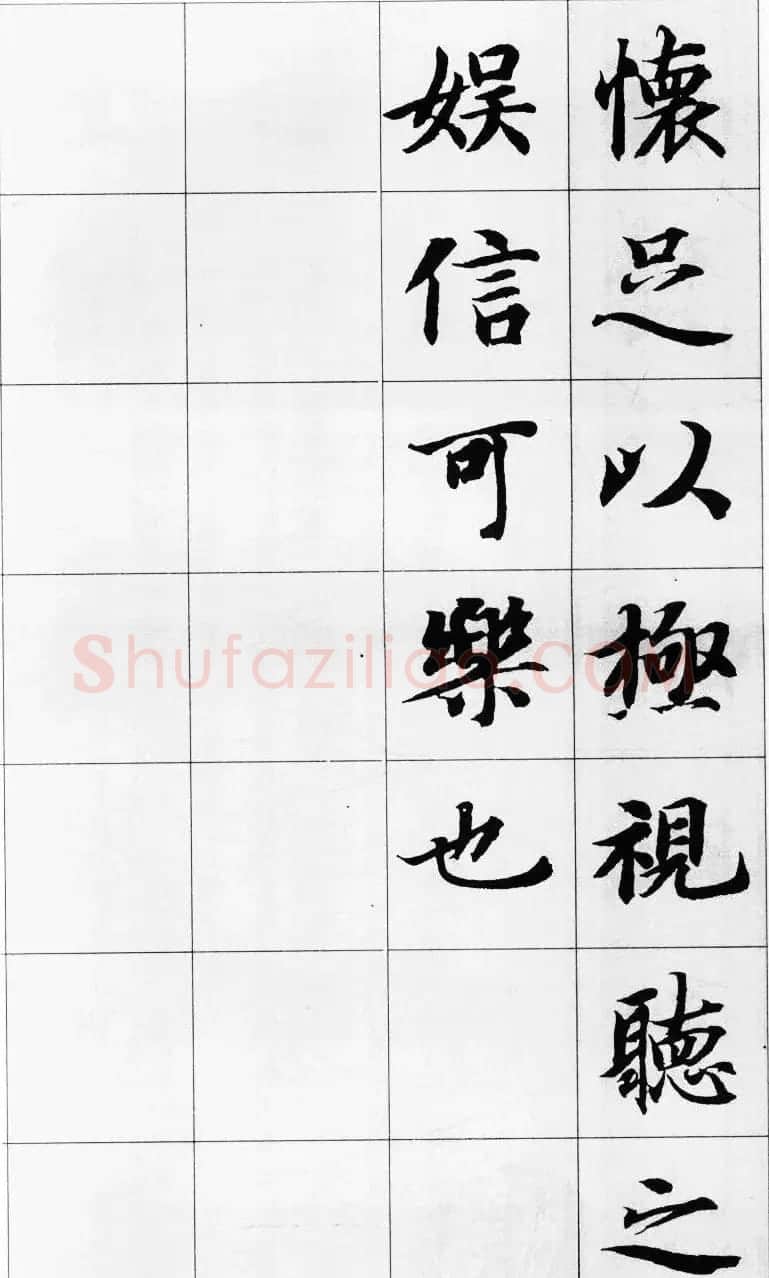 懷足以極視聽之
娱信可樂也
Shufaziliao.COM